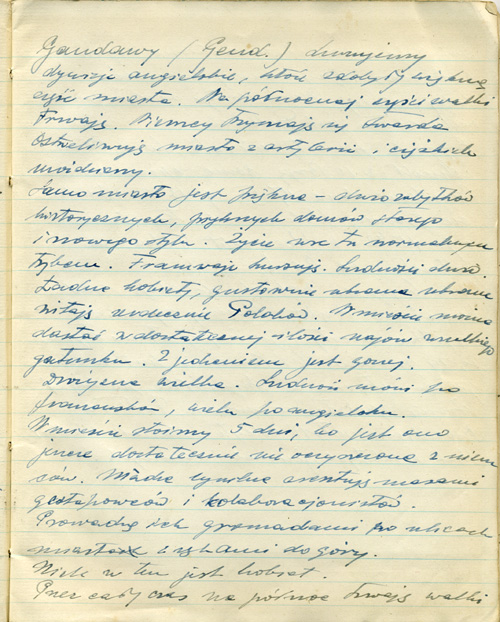 Gandawy (Gend.) Luzujemy
dywizje angielskie, które zdobyły większą
część miasta. Na północnej części walki
trwają. Niemcy trzymają się twardo
Ostrzeliwują miasto z artylerii i ciężkich
moździerzy.
Samo miasto jest piękne - dużo zabytków
historycznych, pięknych domów starego
i nowego stylu. Życie wre tu normalnym
trybem. Tramwaje kursują. Ludności dużo.
Ładne kobiety, gustownie ubrane
witają serdecznie Polaków. W mieście można
dostać w dostatecznej ilości napojów wszelkiego
gatunku. Z jedzeniem jest gorzej.
Drożyzna wielka. Ludność mówi po
francusku, wielu po angielsku.
W mieście stoimy 5 dni, bo jest ono
jeszcze dostatecznie nie oczyszczone z niem
ców. Władze cywilne aresztują masami
gestapowców i kolaboracjonistów.
Prowadzą ich gromadami po ulicach
miasta z rękami do góry.
Wiele w tem jest kobiet.
Przez cały czas na północ trwają walki